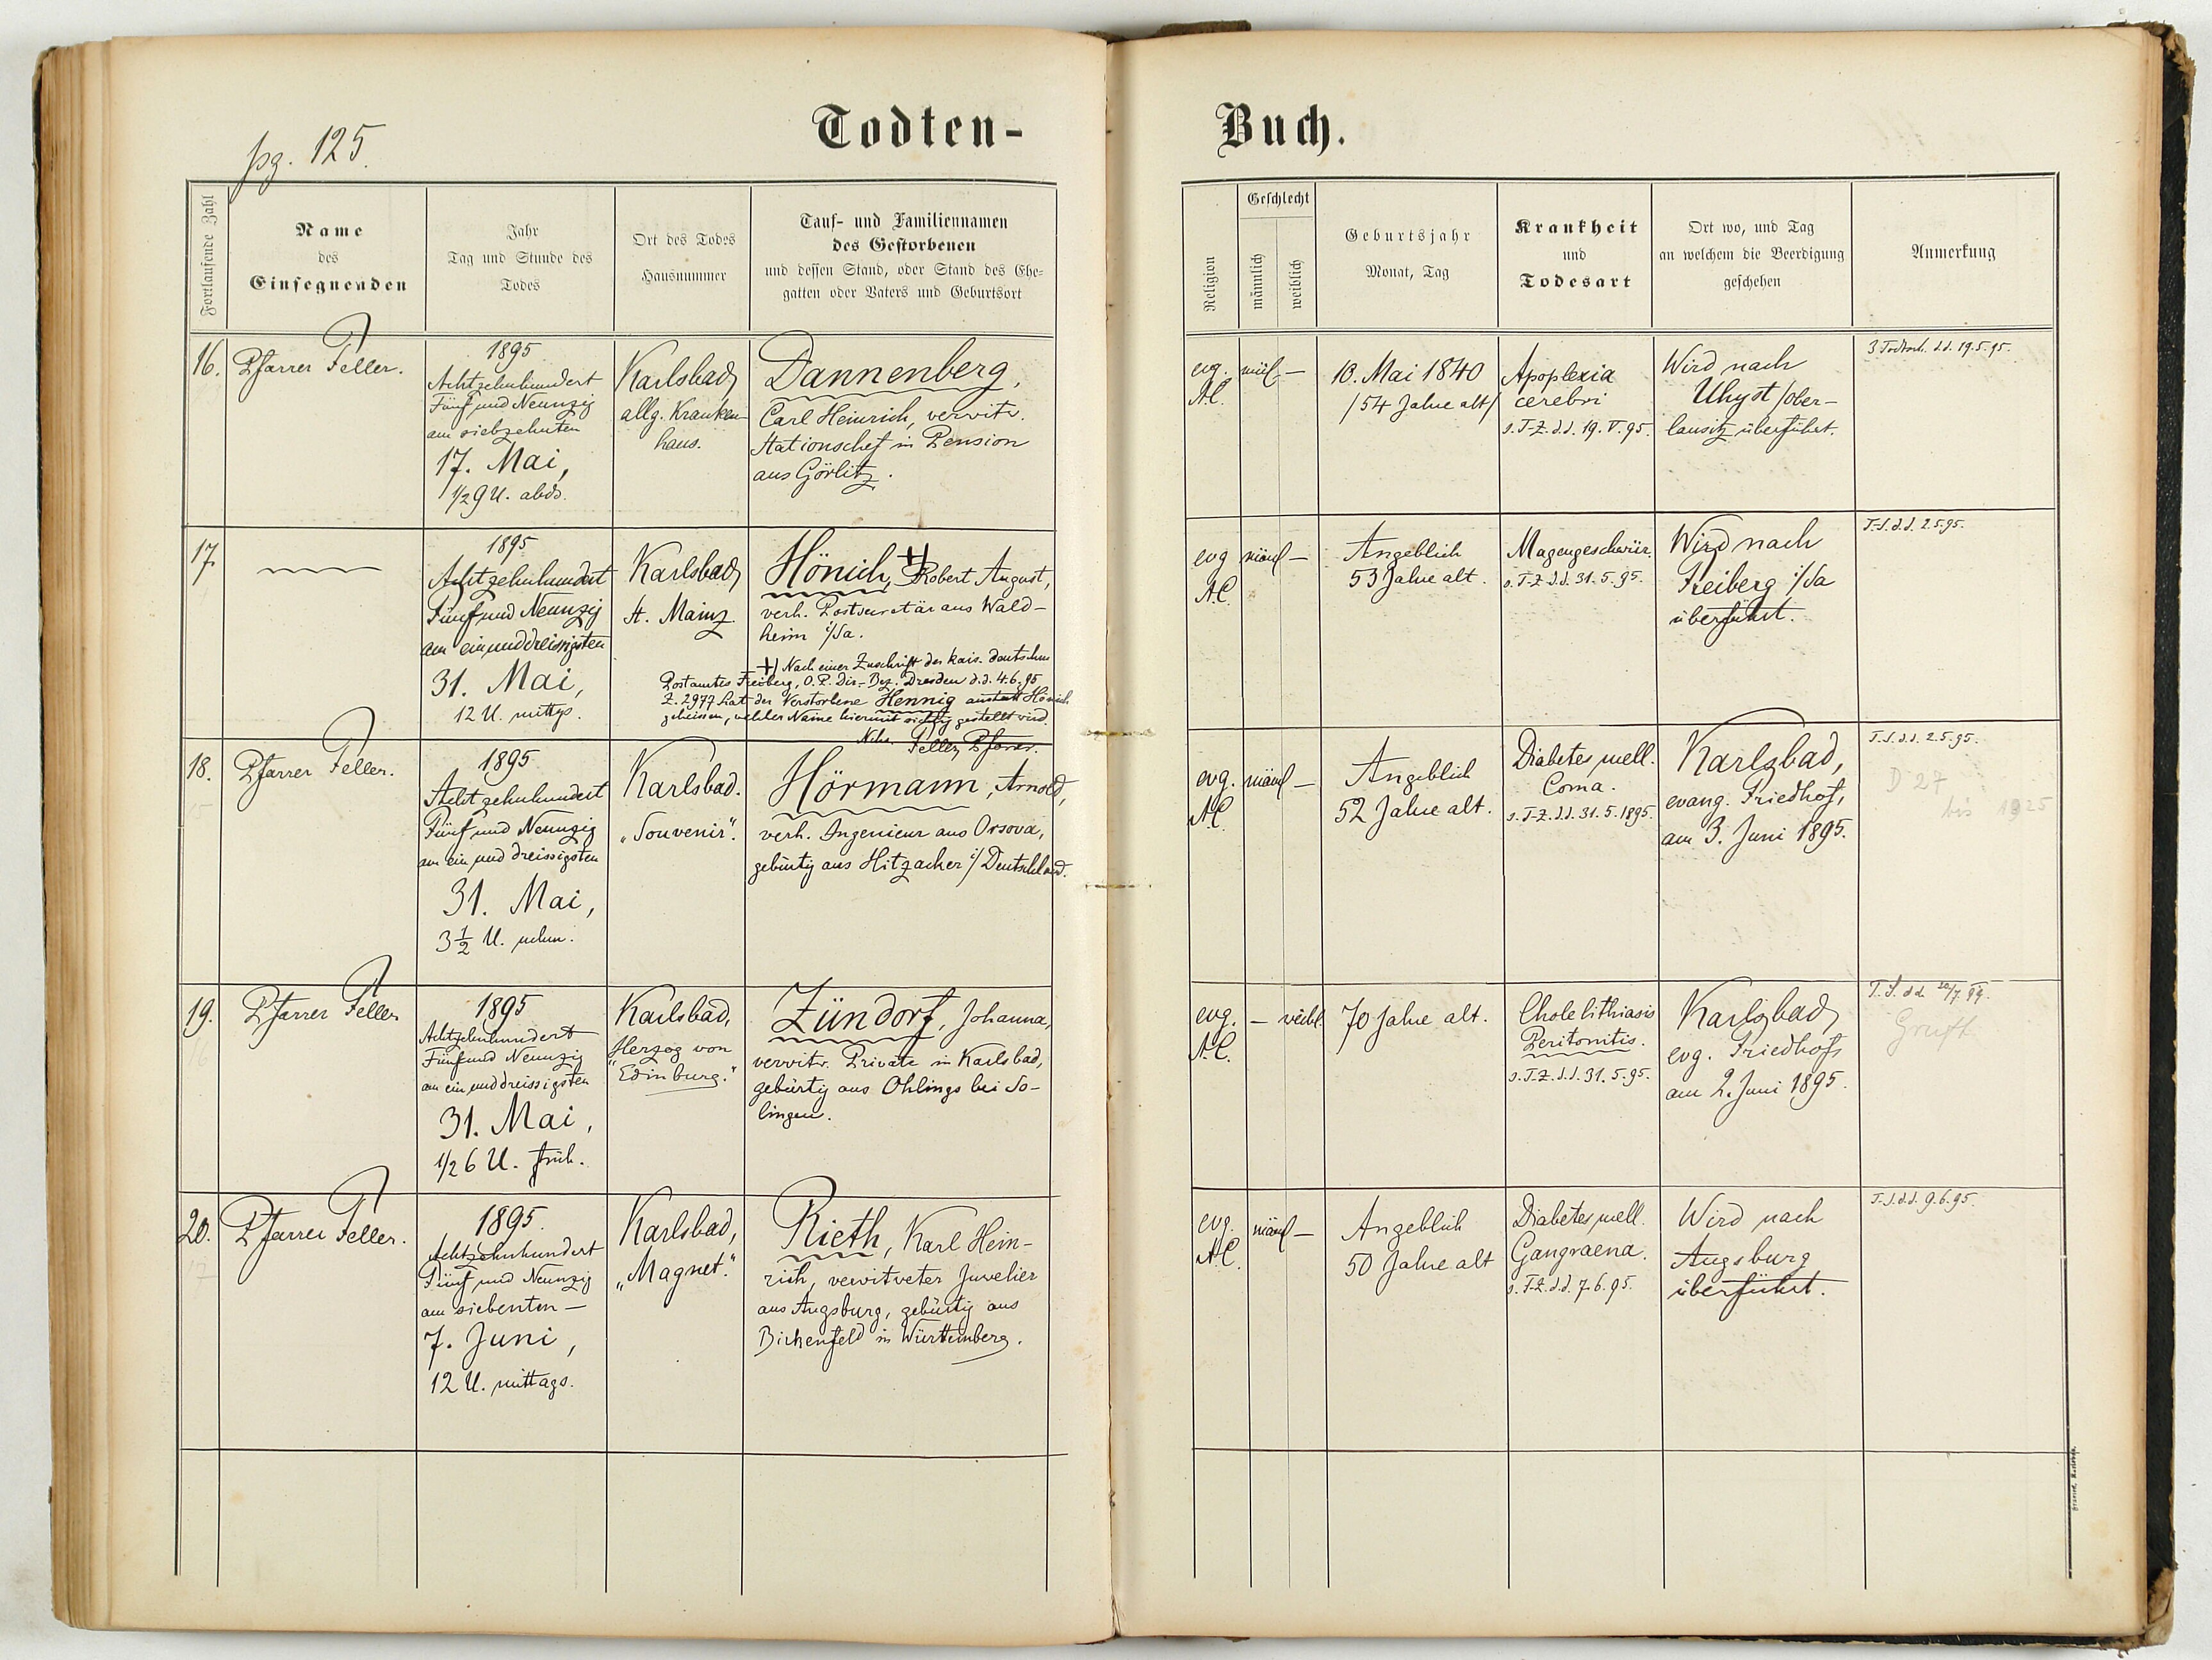 pg. 125.
Todten-
Buch.
Fortlaufende Zahl
Name
des
Einsegnenden
Jahr
Tag und Stunde des
Todes
Ort des Todes
Hausnummer
Tauf- und Familiennamen
des Gestorbenen
und dessen Stand, oder Stand des Ehe-
gatten oder Vaters und Geburtsort
Religion
Geschlecht
männlich
weiblich
Geburtsjahr
Monat, Tag
Krankheit
und
Todesart
Ort wo, und Tag
an welchem die Beerdigung
geschehen
Anmerkung
16.
Pfarrer Feller.
1895
Achtzehnhundert
Fünf und Neunzig
am siebzehnten
17. Mai,
1/2 9 U. abds.
Karlsbad,
allg. Kranken-
haus.
Dannenberg,
Carl Heinrich, verwitw.
Stationschef in Pension
aus Görlitz.
evg.
A.C.
—
10. Mai 1840
/54 Jahre alt/
Apoplexia
cerebri
s. T-Z. d.d. 19. V. 95.
Wird nach
Uhyst /Ober-
lausitz überführt.
d.d. 19.5.95.
17.
1895
Achtzehnhundert
Fünf und Neunzig
am einunddreissigsten
31. Mai,
12 U. mittgs.
Karlsbad,
St. Mainz.
Hönich, +) Robert August,
verh. Postsecretär aus Wald-
heim i/Sa.
+) Nach einer Zuschrift des kais. deutschen
Postamtes Freiberg, O.P. Dir.-Bez. Dresden d.d. 4.6.95
Z. 2977 hat der Verstorbene Hennig anstatt Hönich
geheissen, welcher Name hiermit richtig gestellt wird.
Feller, Pfarrer.
evg
A.C.
männl —
Angeblich
53 Jahre alt.
Magengeschwür.
s. T-Z. d.d. 31.5.95.
Wird nach
Freiberg i/Sa
überführt.
T.-S. d.d. 2.5.95.
18.
Pfarrer Feller.
1895
Achtzehnhundert
Fünf und Neunzig
am ein und dreissigsten
31. Mai,
3 1/2 U. nchm.
Karlsbad.
„Souvenir".
Hörmann, Arnold,
verh. Ingenieur aus Orsova,
gebürtig aus Hitzacker i/Deutschland.
evg.
A.C.
männl —
Angeblich
52 Jahre alt.
Diabetes mell.
Coma.
s. T-Z. d.d. 31.5.1895.
Karlsbad,
evang. Friedhof,
am 3. Juni 1895.
T.-S. d.d. 2.5.95.
D 27
bis 1925
19.
16
Pfarrer Feller
1895
Achtzehnhundert
Fünf und Neunzig
am ein und dreissigsten
31. Mai,
1/2 6 U. früh.
Karlsbad,
„Herzog von
Edinburg."
Zündorf, Johanna,
verwitw. Private in Karlsbad,
gebürtig aus Ohlings bei So-
lingen.
evg.
A.C.
— weibl.
70 Jahre alt.
Cholelithiasis
Peritonitis.
s. T-Z. d.d. 31.5.95.
Karlsbad,
evg. Friedhof,
am 2. Juni 1895.
T. S. dd
Gruft
20.
17
Pfarrer Feller.
1895.
Achtzehnhundert
Fünf und Neunzig
am siebenten —
7. Juni,
12 U. mittags.
Karlsbad,
„Magnet."
Rieth, Karl Hein-
rich, verwitweter Juvelier
aus Augsburg, gebürtig aus
Birkenfeld in Württemberg.
evg.
A.C.
männl —
Angeblich
50 Jahre alt
Diabetes mell.
Gangraena.
s. T-Z. d.d. 7.6.95.
Wird nach
Augsburg
überführt.
T.-S. d.d. 9.6.95.